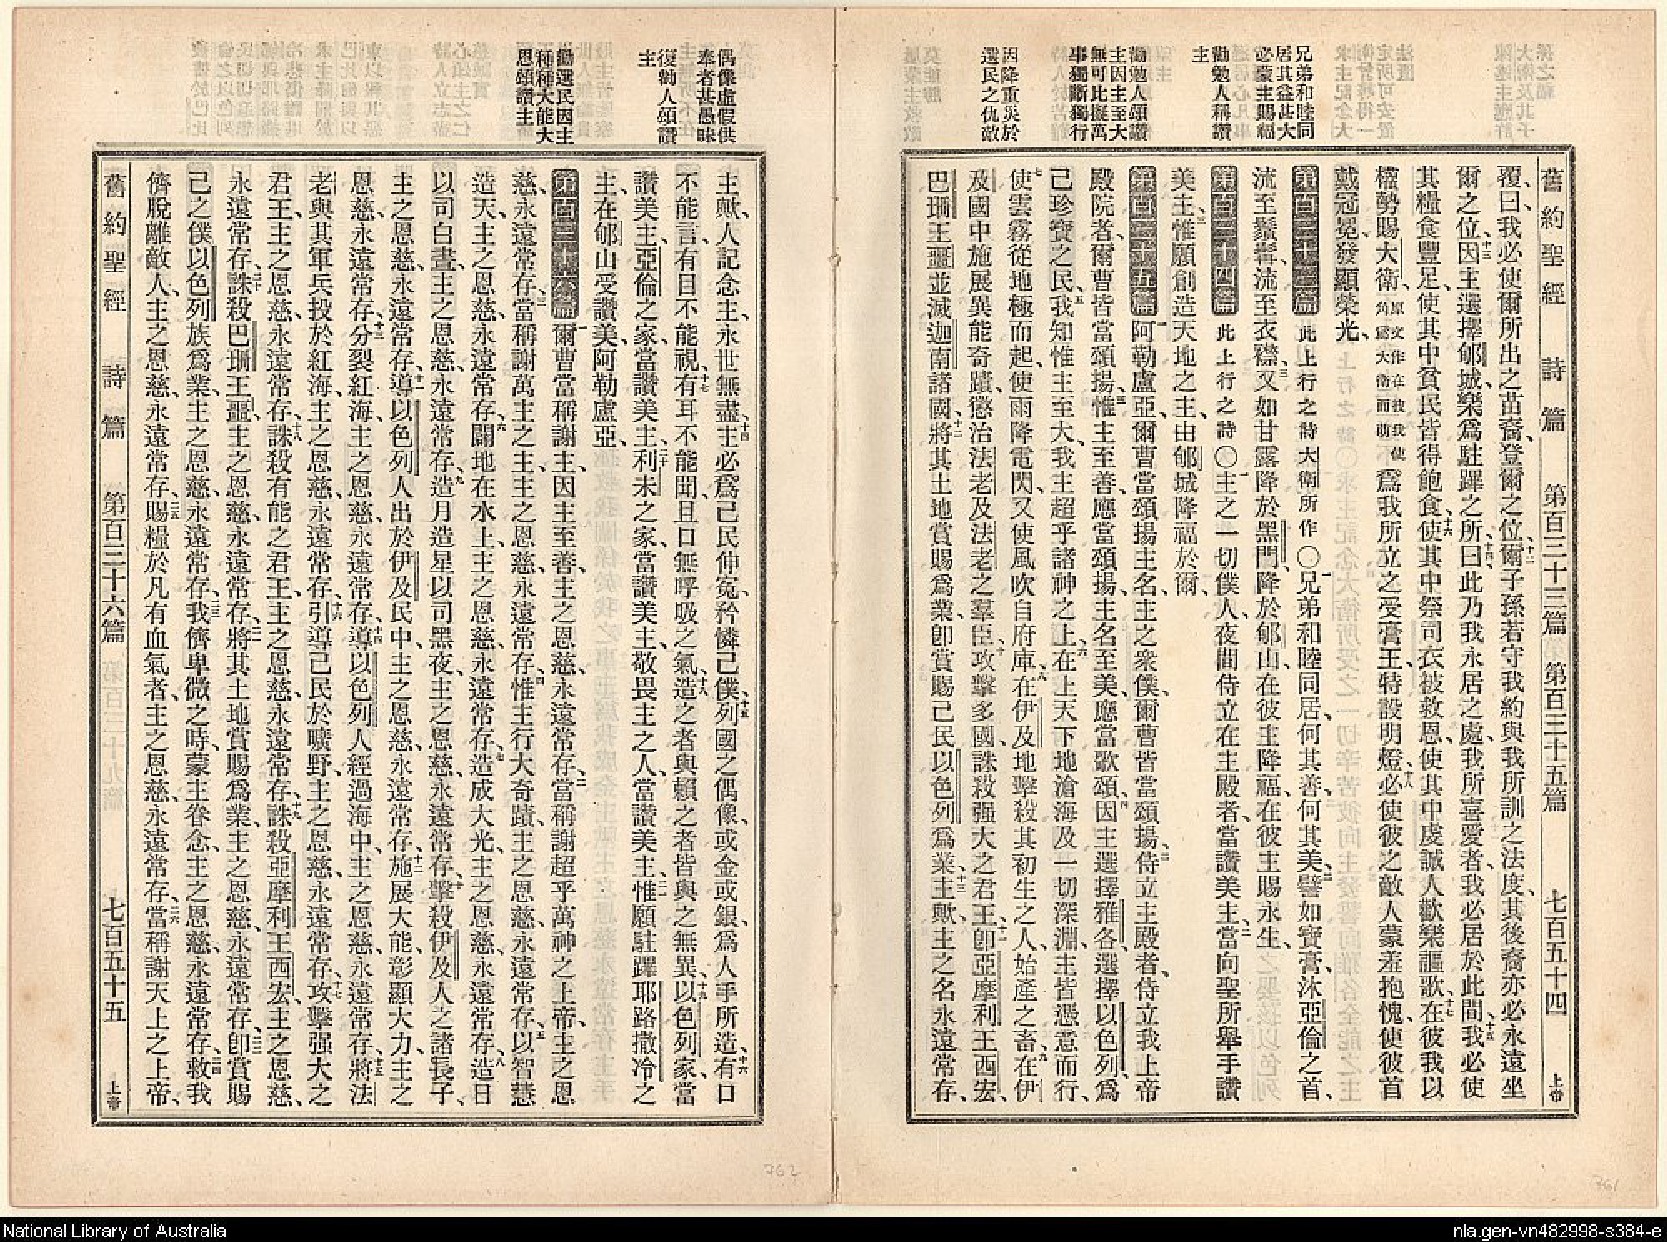 舊約聖經 詩篇 第百三十三篇 第百三十五篇 七百五十四 上帝
覆、曰、我必使爾所出之苗裔、登爾之位、十二爾子孫若守我約、與我所訓之法度、其後裔亦必永遠坐
爾之位、十三因主選擇郇城、樂爲駐蹕之所、十四曰、此乃我永居之處、我所喜愛者、我必居於此間、十五我必使
其糧食豐足、使其中貧民皆得飽食、十六使其中祭司衣被救恩、使其中虔誠人歡樂謳歌、十七在彼我以
權勢賜大衛、原文作在彼我使角爲大衛而萌 爲我所立之受膏王、特設明燈、十八必使彼之敵人蒙羞抱愧、使彼首
戴冠冕、發顯榮光、
第百三十三篇 此上行之詩大衛所作〇一兄弟和睦同居、何其善、何其美、二譬如寶膏沐亞倫之首、
流至鬚髯、流至衣襟、三又如甘露降於黑門、降於郇山、在彼主降福、在彼主賜永生、
第百三十四篇 此上行之詩〇一主之一切僕人、夜間侍立在主殿者、當讚美主、二當向聖所舉手、讚
美主、三惟願創造天地之主、由郇城降福於爾、
第百三十五篇 一阿勒盧亞、爾曹當頌揚主名、主之衆僕、爾曹皆當頌揚、二侍立主殿者、侍立我上帝
殿院者、爾曹皆當頌揚、三惟主至善、應當頌揚、主名至美、應當歌頌、四因主選擇雅各、選擇以色列爲
己珍寶之民、五我知惟主至大、我主超乎諸神之上、六在上天下地、滄海及一切深淵、主皆憑意而行、
七使雲霧從地極而起、使雨降電閃、又使風吹自府庫、八在伊及地、擊殺其初生之人、始產之畜、九在伊
及國中、施展異能奇蹟、懲治法老、及法老之羣臣、十攻擊多國、誅殺强大之君王、十一卽亞摩利王西宏、
巴珊王噩、並滅迦南諸國、十二將其土地賞賜爲業、卽賞賜己民以色列爲業、十三主歟、主之名永遠常存、
兄弟和睦同居其益甚大必蒙主賜福
勸勉人稱讚主
勸勉人頌讚主因主至大無可比擬萬事獨斷獨行
因降重災於選民之仇敵
主歟、人記念主、永世無盡、十四主必爲己民伸冤、矜憐己僕、十五列國之偶像、或金或銀、爲人手所造、十六有口
不能言、有目不能視、十七有耳不能聞、且口無呼吸之氣、十八造之者與賴之者、皆與之無異、十九以色列家當
讚美主、亞倫之家當讚美主、二十利未之家當讚美主、敬畏主之人當讚美主、二一惟願駐蹕耶路撒冷之
主、在郇山受讚美、阿勒盧亞、
第百三十六篇 一爾曹當稱謝主、因主至善、主之恩慈、永遠常存、二當稱謝超乎萬神之上帝、主之恩
慈、永遠常存、三當稱謝萬主之主、主之恩慈、永遠常存、四惟主行大奇蹟、主之恩慈、永遠常存、五以智慧
造天、主之恩慈、永遠常存、六闢地在水上、主之恩慈、永遠常存、七造成大光、主之恩慈、永遠常存、八造日
以司白晝、主之恩慈、永遠常存、九造月造星以司黑夜、主之恩慈、永遠常存、十擊殺伊及人之諸長子、
主之恩慈、永遠常存、十一導以色列人出於伊及民中、主之恩慈、永遠常存、十二施展大能、彰顯大力、主之
恩慈、永遠常存、十三分裂紅海、主之恩慈、永遠常存、十四導以色列人經過海中、主之恩慈、永遠常存、十五將法
老與其軍兵投於紅海、主之恩慈、永遠常存、十六引導己民於曠野、主之恩慈、永遠常存、十七攻擊强大之
君王、主之恩慈、永遠常存、十八誅殺有能之君王、主之恩慈、永遠常存、十九誅殺亞摩利王西宏、主之恩慈、
永遠常存、二十誅殺巴珊王噩、主之恩慈、永遠常存、二一將其土地賞賜爲業、主之恩慈、永遠常存、二二卽賞賜
己之僕以色列族爲業、主之恩慈、永遠常存、二三我儕卑微之時、蒙主眷念、主之恩慈、永遠常存、二四救我
儕脫離敵人、主之恩慈、永遠常存、二五賜糧於凡有血氣者、主之恩慈、永遠常存、二六當稱謝天上之上帝、
舊約聖經 詩篇 第百三十六篇 七百五十五 上帝
偶像虛假供奉者甚愚昧
復勸人頌讚主
勸選民因主種種大能大恩頌讚主
762
761
National Library of Australia
nla.gen-vn482998-s384-e